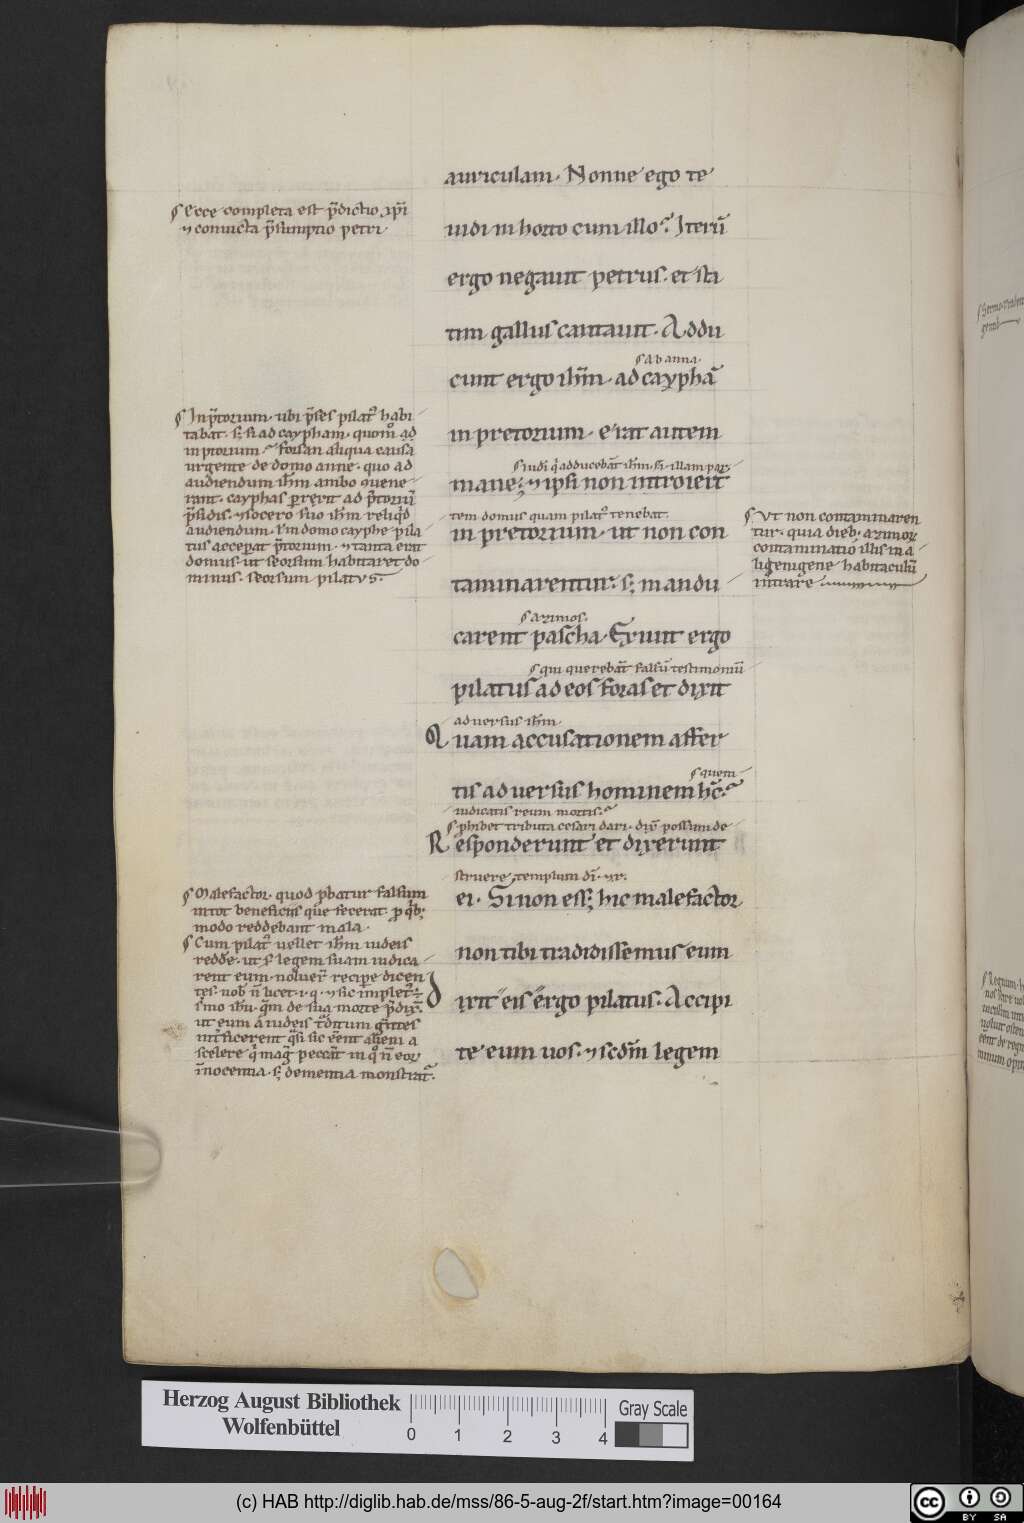 auriculam. Nonne ego te
¶ Ecce completa est p̄dictio xp̄i
⁊ conuicta p̄sumptio petri.
uidi in horto cum illo? Iterū
ergo negauit petrus. et sta
tim gallus cantauit. Addu
¶ Ab anna.
cunt ergo ih̄m. ad cayphā
¶ In p̄torium. ubi p̄ses pilat᷒ habi
tabat. s; si ad caypham. quom̊ ad
in ptorium? forsan aliqua causa
urgente de domo anne. quo ad
audiendum ih̄m ambo ꝯuene
rant. cayphas perrexit ad p̄toriū
p̄sidis. ⁊ socero suo ih̄m reliqͥd
audiendum. ł in domo cayphe pila
tus acceperat p̄torium. ⁊ tanta erat
domus. ut seorsum habitaret do
minus. seorsum pilatus.
in pretorium. erat autem
¶ iudi qͥ adducebāt ih̄m. s; illam par
mane; ⁊ ipsi non introierūt
tem domus quam pilat᷒ tenebat.
in pretorium. ut non con
¶ Vt non contaminaren
tur. quia dieb; azimoꝝ
contaminatio illis in a
ligenigene habitaculū
intrare
taminarentur. s; mandu
¶ azimos.
carent pascha. Exiuit ergo
¶ qui querebāt falsū testimoniū
pilatus ad eos foras et dixit
aduersus ih̄m
Quam accusationem affer
¶ quem
tis aduersus hominem hc̄?
iudicatis reum mortis?
¶ phibet tributa cesari dari. dix̄ possum de
Responderunt et dixerunt
struere templum dī. ⁊ r̄.
ei. Si non ess; hic malefactor
¶ Malefactor. quod pbatur falsum
in tot beneficiis que fecerat. p qͥb;
modo reddebant mala.
non tibi tradidissemus eum
¶ Cum pilat᷒ uellet ih̄m iudeis
redde. ut s̄ legem suam iudica
rent eum. noluer̄ recipe dicen
tes. nob̄ n̄ licet. i. q. ⁊ sic implet᷒
s̄mo ih̄u. qͣm de sua morte p̄dix̄.
ut eum a iudeis tͣditum gentes
int̄ficerent
scelere qͥ mag̊ peccāt in qͦ n̄ eoꝝ
innocentia. s; dementia monstrat᷒.
dixit eis ergo pilatus. Accipi
te eum uos. ⁊ scdm̄ legem
Herzog August Bibliothek
Wolfenbüttel
0 1 2 3 4
Gray Scale
(c) HAB http://diglib.hab.de/mss/86-5-aug-2f/start.htm?image=00164
cc BY SA